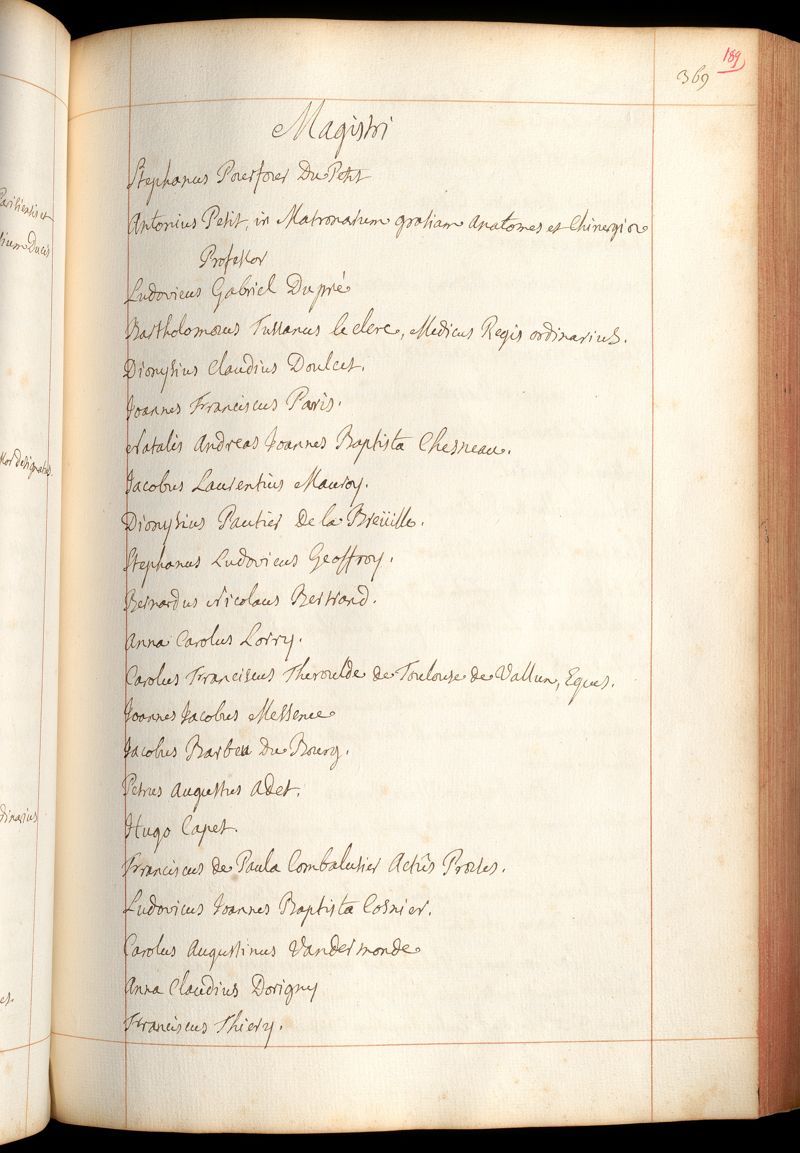 189
369
Parisiensis et
sium Ducis
ssor designatus
dinarius
es.
Magistri
Stephanus Pourfour Du Petit
Antonius Petit, in Matronarum gratiam Anatomes et Chirurgiæ
Professor
Ludovicus Gabriel Dupré
Bartholomæus Tussanus le clerc, Medicus Regis ordinarius.
Dionysius Claudius Doulcet.
Joannes Franciscus Paris.
Natalis Andreas Joannes Baptista Chesneau.
Jacobus Laurentius Mauroy.
Dionysius Pautier de la Breüille.
Stephanus Ludovicus Geoffroy.
Bernardus Nicolaus Bertrand.
Anna Carolus Lorry.
Carolus Franciscus Theroulde de Toulouse de Vallun, Eques.
Joannes Jacobus Messence
Jacobus Barbeu Du Bourg.
Petrus Augustus Adet.
Hugo Capet.
Franciscus de Paula Combalusier Actûs Præses.
Ludovicus Joannes Baptista Cosnier.
Carolus Augustinus Vandermonde
Anna Claudius Dorigny
Franciscus Thiery.